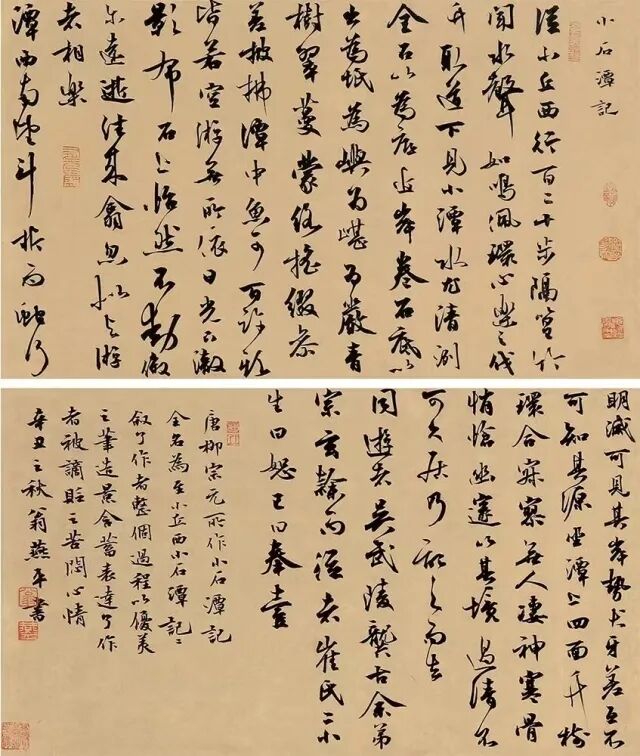 小石潭記
從小丘西行百二十步隔篁竹
聞水聲如鳴佩環心樂之伐
竹取道下見小潭水尤清冽
全石以為底近岸卷石底以
出為坻為嶼為嵁為巖青
樹翠蔓蒙絡搖綴參
差披拂潭中魚可百許頭
皆若空游無所依日光下澈
影布石上怡然不動俶
爾遠逝往來翕忽似與游
者相樂
潭西南望斗折而蛇行
明滅可見其岸勢犬牙差互不
可知其源坐潭上四面竹樹
環合寂寥無人淒神寒骨
悄愴幽邃以其境過清不
可久居乃記之而去
同遊者吳武陵龔古余弟
宗玄隸而從者崔氏二小
生曰恕己曰奉壹
唐柳宗元所作小石潭記
全名為至小丘西小石潭記記
敘了作者整個過程以優美
之筆造景含蓄表達了作
者被謫貶之苦悶心情
辛丑之秋翁燕平書